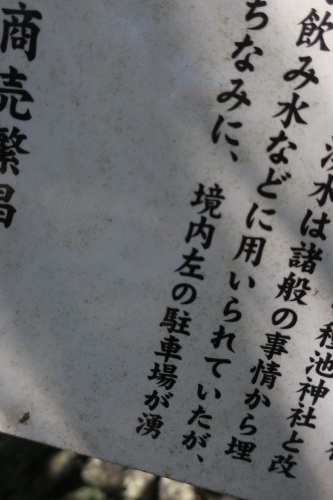 種池神社と改
水は諸般の事情から埋
飲み水などに用いられていたが、
ちなみに、境内左の駐車場が湧
商売繁昌